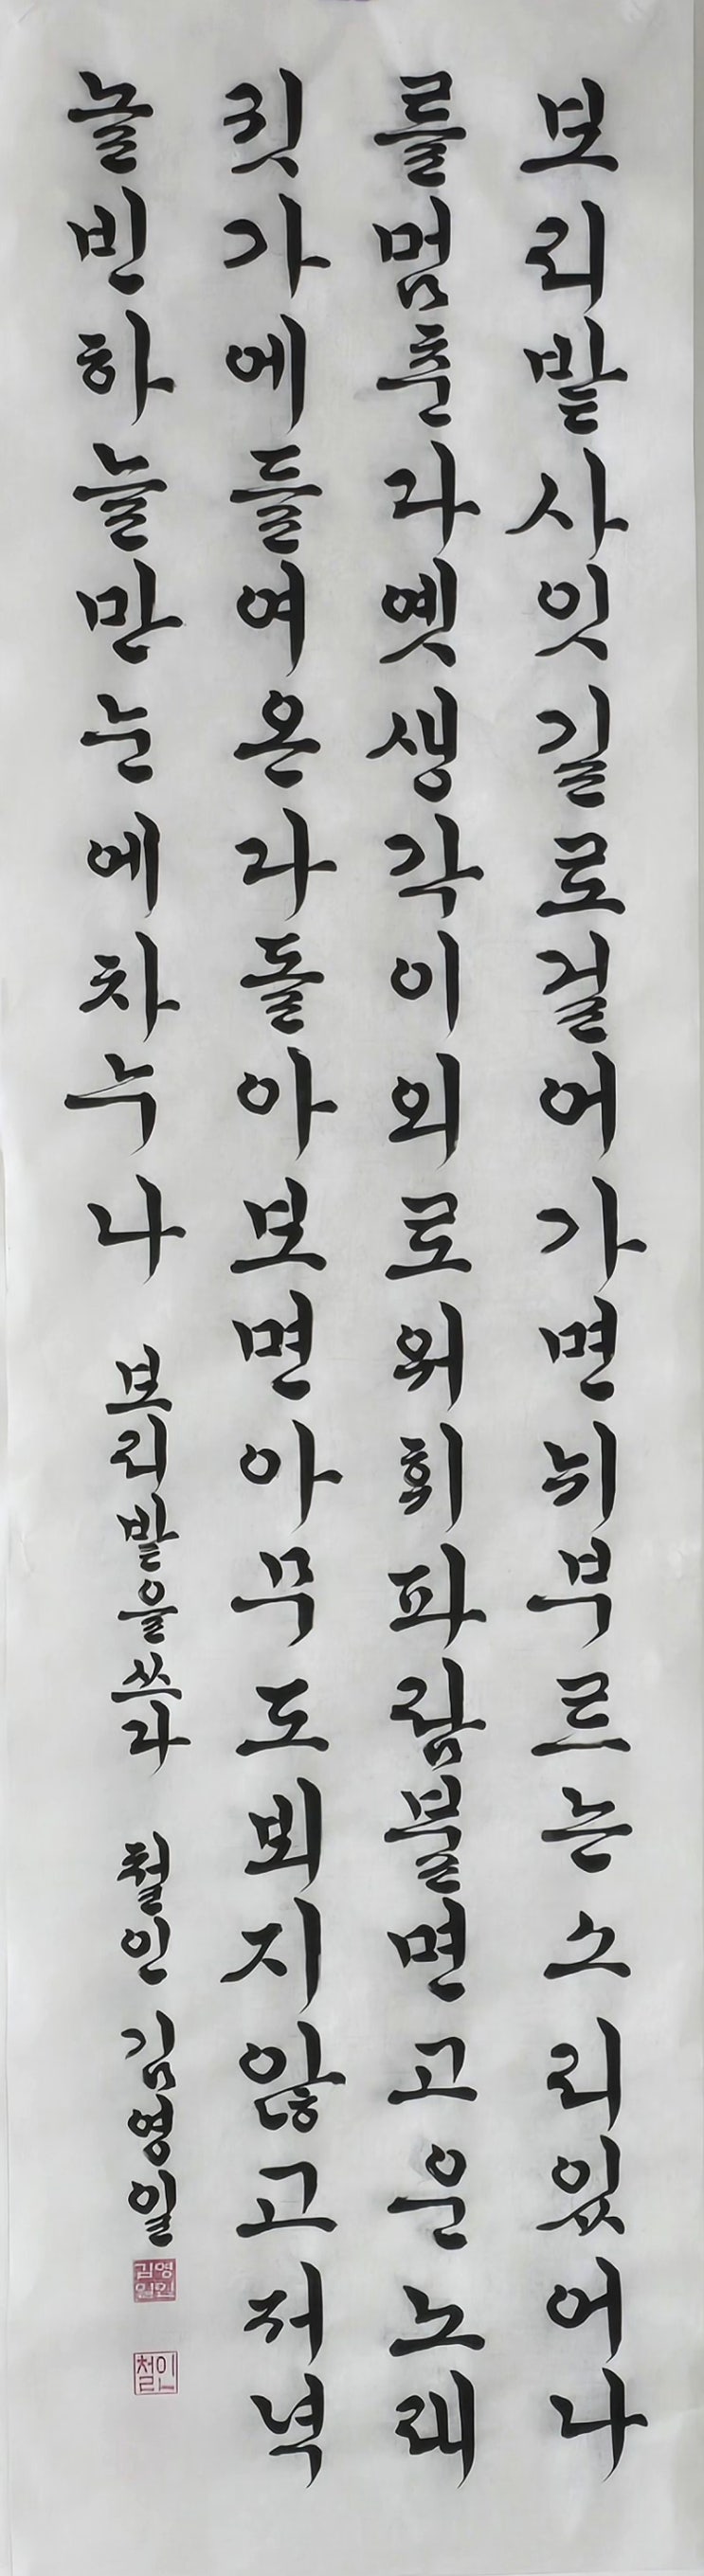 보리밭사잇길로걸어가면뉘부르는소리있어나
를멈춘다옛생각이외로워휘파람불면고운노래
귓가에들여온다돌아보면아무도뵈지않고저녁
놀빈하늘만눈에차누나
보리밭을쓰다 철인 김영일
김영일인
철인